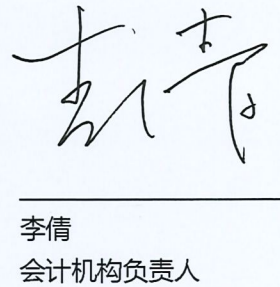 李倩
会计机构负责人